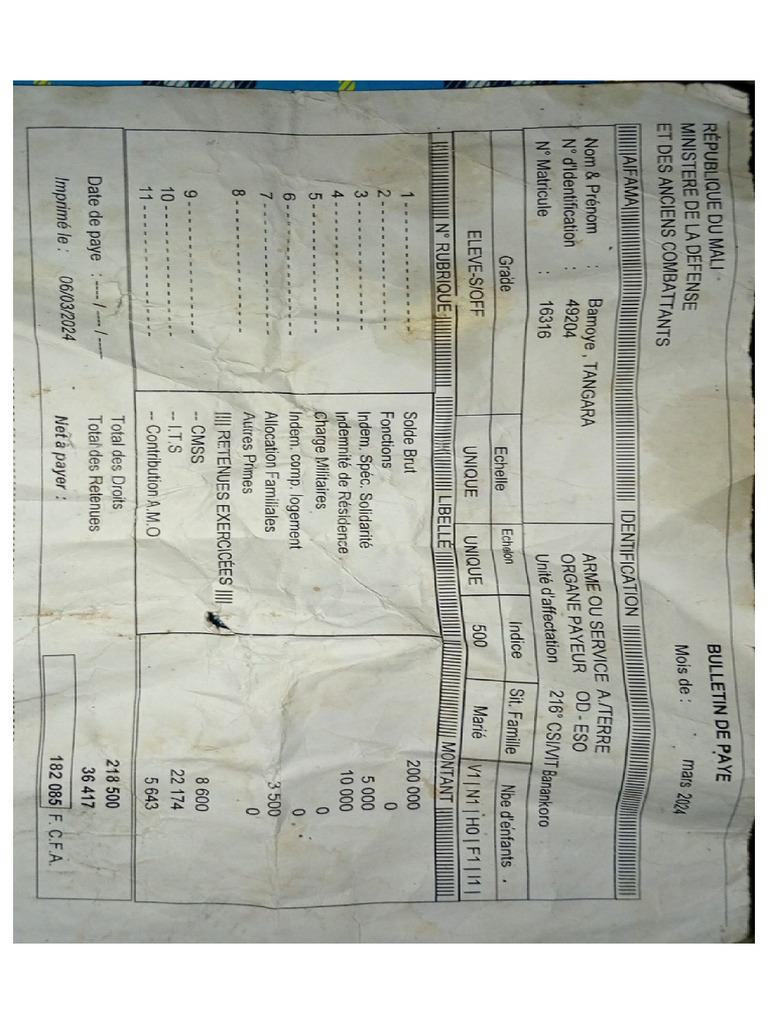 RÉPUBLIQUE DU MALI
MINISTERE DE LA DEFENSE
ET DES ANCIENS COMBATTANTS
BULLETIN DE PAYE
Mois de : mars 2024
AIFAMA IDENTIFICATION
Nom & Prénom : Bamoye , TANGARA
N° d'Identification : 49204
N° Matricule : 16316
ARME OU SERVICE A./TERRE
ORGANE PAYEUR OD - ESO
Unité d'affectation 216° CSI/VIT Banankoro
Grade Echelle Echelon Indice Sit. Famille Nbe d'enfants
ELEVE-S/OFF UNIQUE UNIQUE 500 Marié V1 | N1 | H0 | F1 | I1 |
N° RUBRIQUE LIBELLÉ MONTANT
1 - - - - - - - - - - - - Solde Brut 200 000
2 - - - - - - - - - - - - Fonctions 0
3 - - - - - - - - - - - - Indem. Spéc. Solidarité 5 000
4 - - - - - - - - - - - - Indemnité de Résidence 10 000
5 - - - - - - - - - - - - Charge Militaires 0
6 - - - - - - - - - - - - Indem. comp. logement 0
7 - - - - - - - - - - - - Allocation Familiales 3 500
8 - - - - - - - - - - - - Autres Primes 0
|||| RETENUES EXERCICÉES ||||
9 - - - - - - - - - - - - -- CMSS 8 600
10 - - - - - - - - - - - - -- I.T.S 22 174
11 - - - - - - - - - - - - -- Contribution A.M.O 5 643
Date de paye : ---/ --/ --- Total des Droits 218 500
Total des Retenues 36 417
Imprimé le : 06/03/2024 Net à payer : 182 085 F. C.F.A.